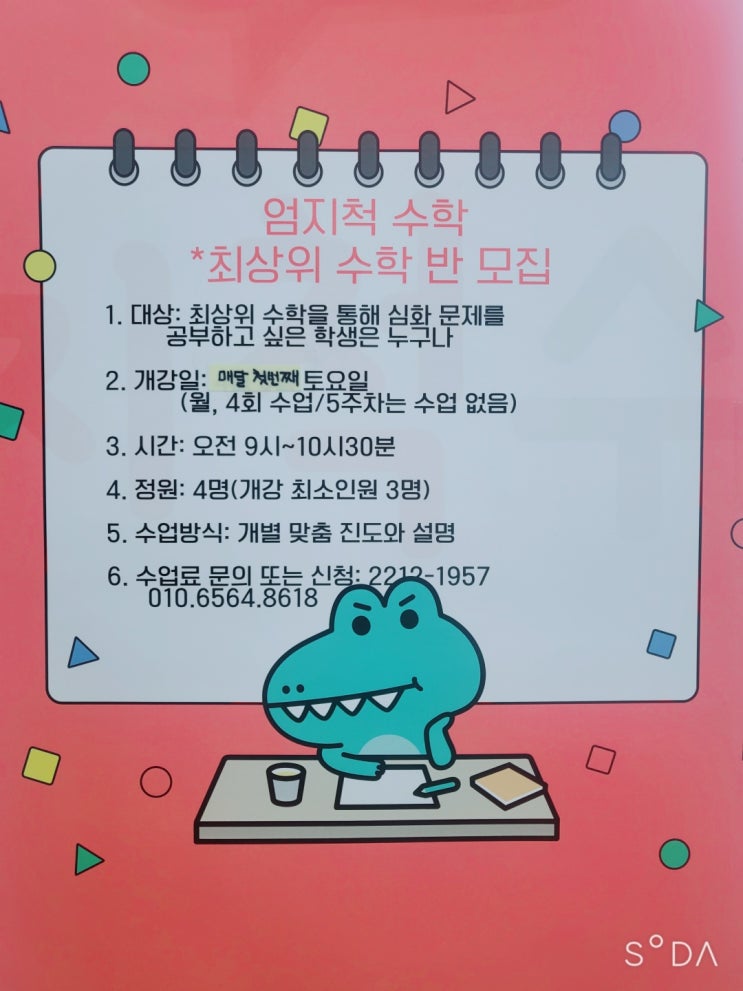 엄지척 수학
*최상위 수학 반 모집
1. 대상: 최상위 수학을 통해 심화 문제를
공부하고 싶은 학생은 누구나
2. 개강일: 매달 첫번째 토요일
(월, 4회 수업/5주차는 수업 없음)
3. 시간: 오전 9시~10시30분
4. 정원: 4명(개강 최소인원 3명)
5. 수업방식: 개별 맞춤 진도와 설명
6. 수업료 문의 또는 신청: 2212-1957
010.6564.8618
SODA